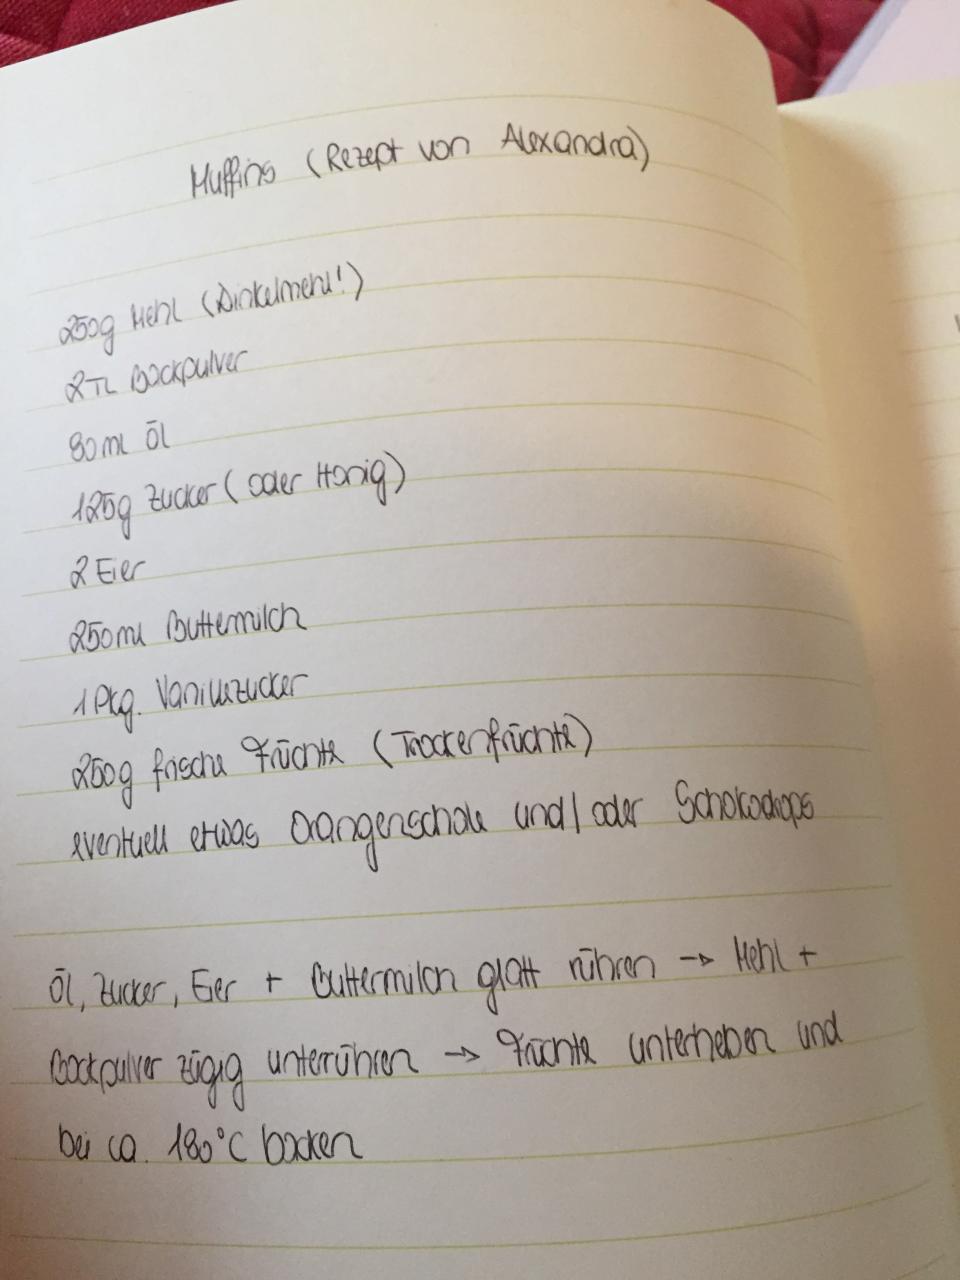 Muffins (Rezept von Alexandra)
250g Mehl (Dinkelmehl!)
2TL Backpulver
80ml Öl
125g Zucker (oder Honig)
2 Eier
250ml Buttermilch
1 Pkg. Vanillezucker
250g frische Früchte (Trockenfrüchte)
eventuell etwas Orangenschale und/oder Schokodrops
Öl, Zucker, Eier + Buttermilch glatt rühren → Mehl +
Backpulver zügig unterrühren → Früchte unterheben und
bei ca. 180°C backen